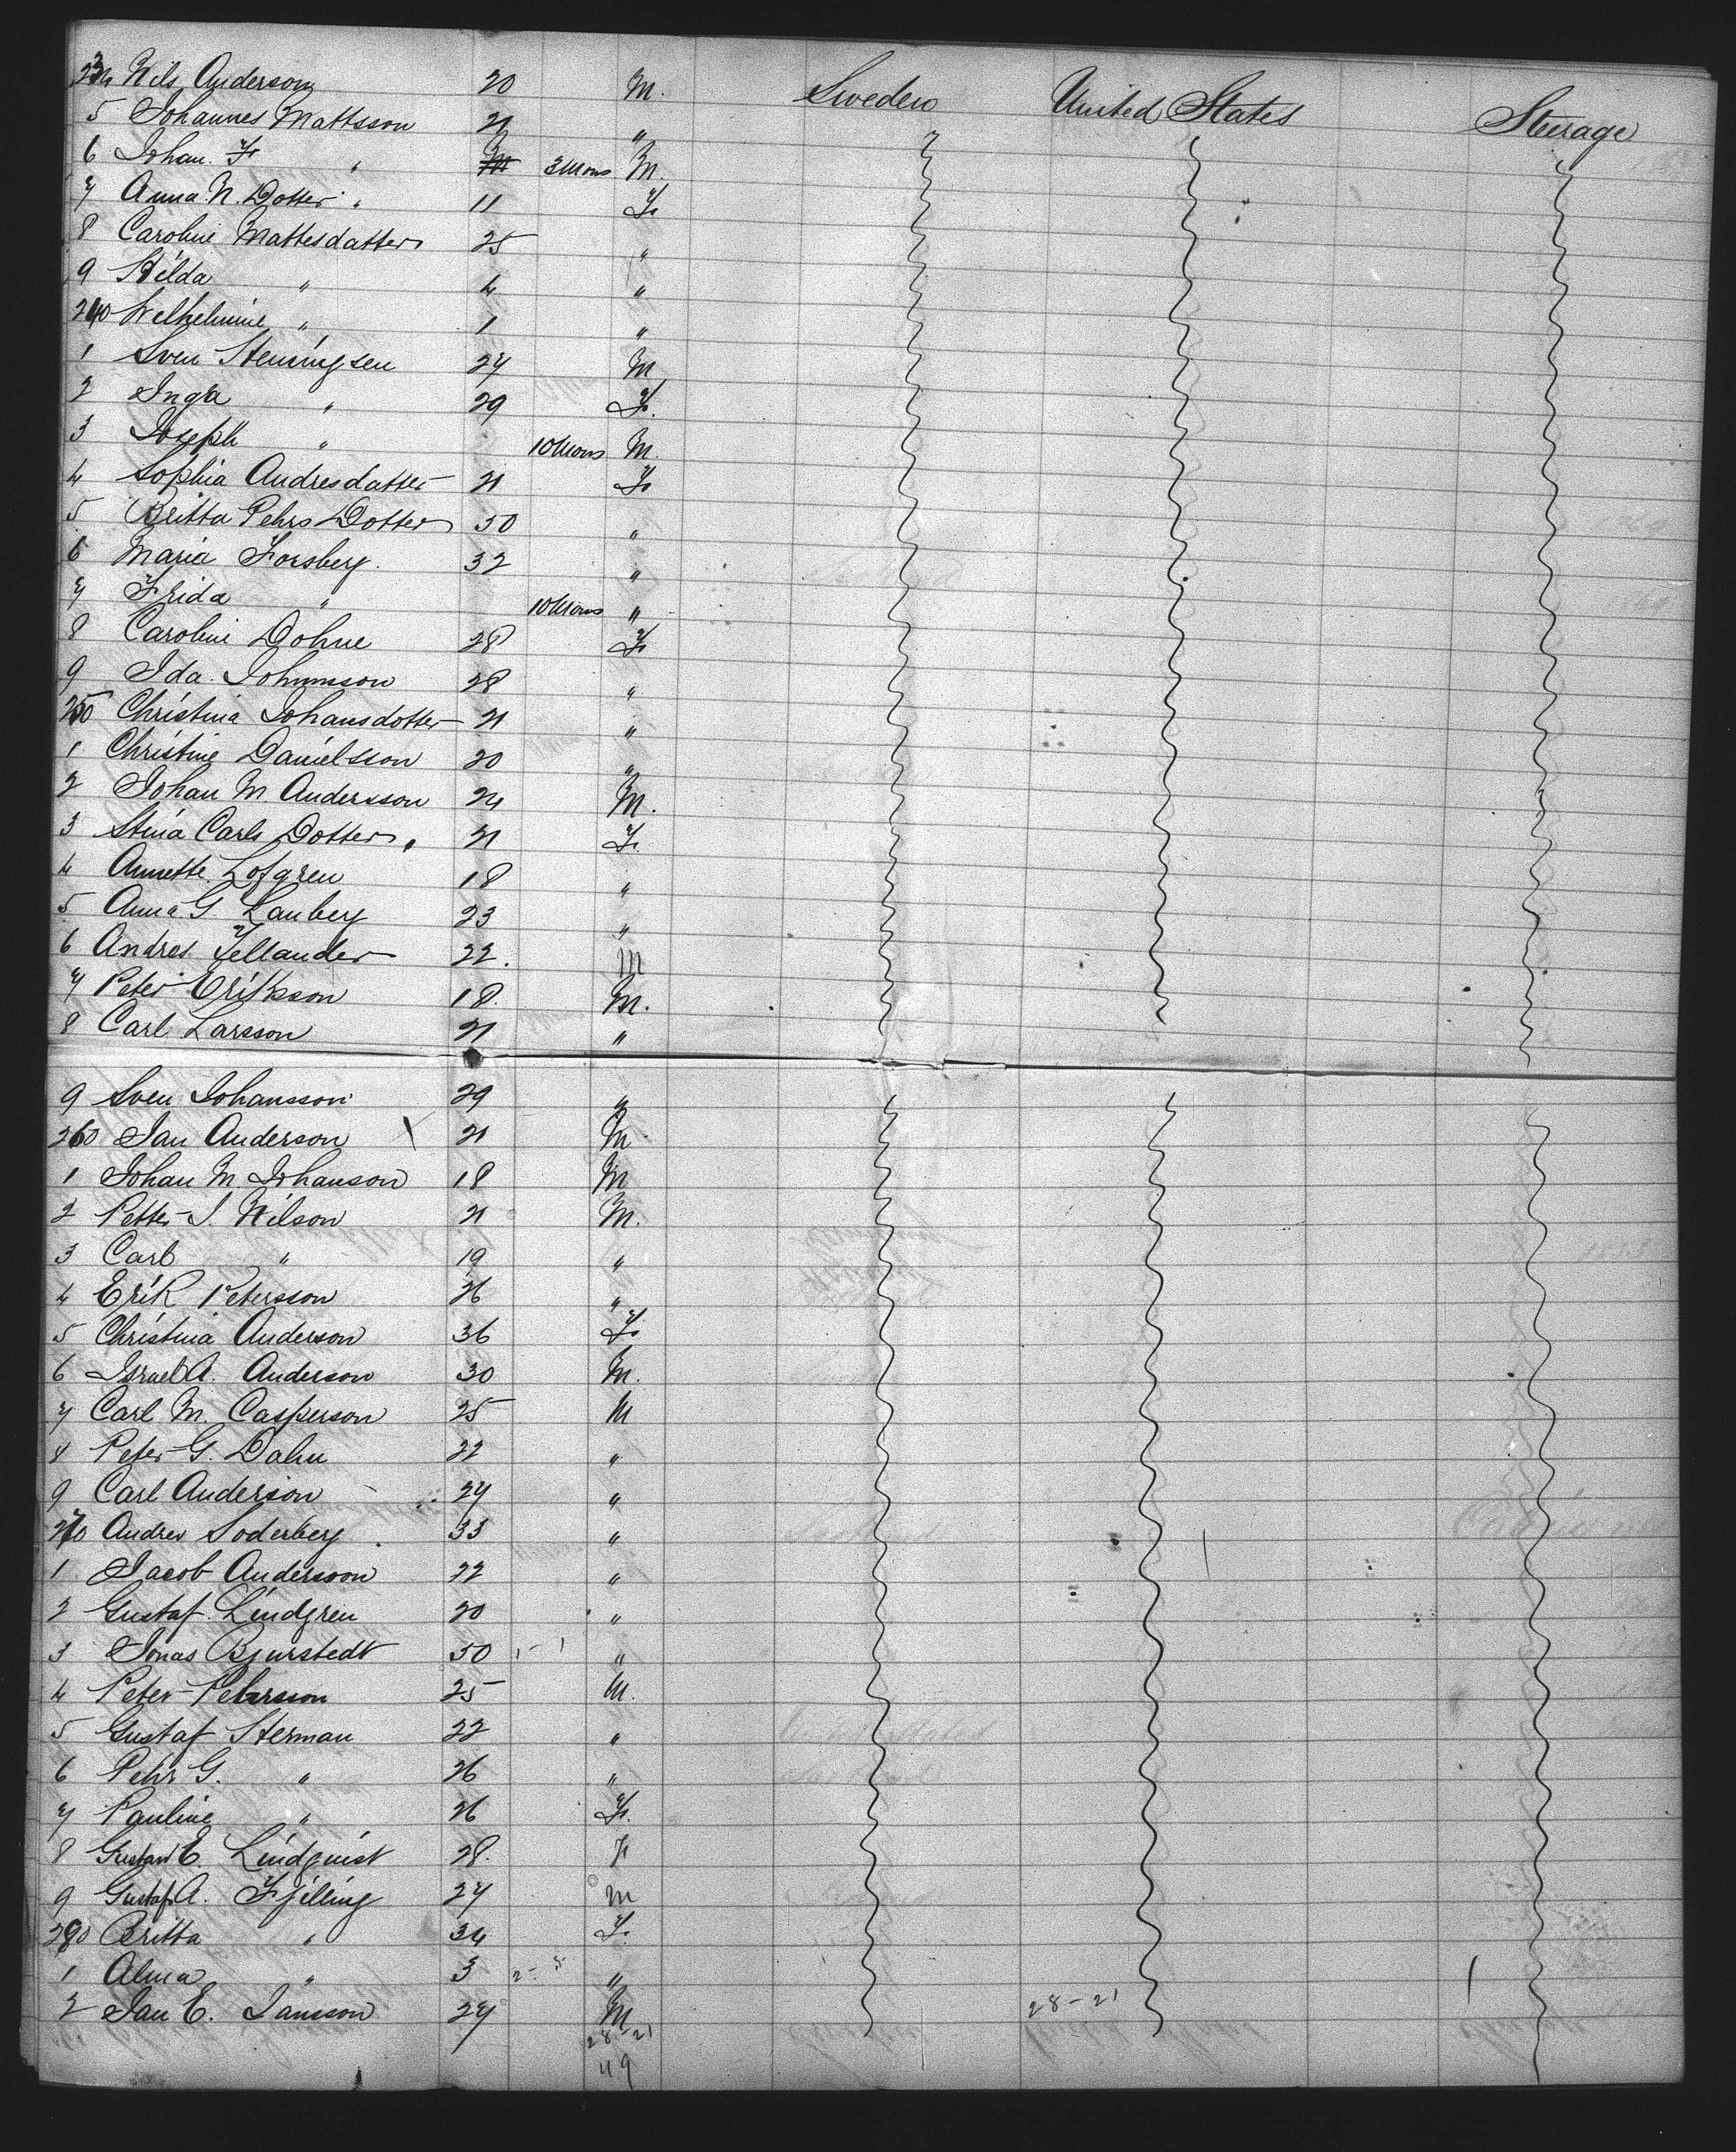 234 Nils Anderson 20 M. Sweden United States Steerage
5 Johannes Mattsson 21 "
6 Johan. F " 3 Mons M.
7 Anna N. Dotter " 11 F.
8 Caroline Mattesdatter 25 "
9 Hilda " 4 "
240 Wilhelmine " 1 "
1 Sven Henningsen 27 M
2 Inga " 29 F.
3 Joseph " 10 Mons M.
4 Sophia Andresdatter 21 F.
5 Britta Pehrs Dotter 50 "
6 Maria Forsberg. 32 "
7 Frida " 10 Mons "
8 Caroline Dohne 28 F.
9 Ida Johnnsson 28 "
250 Christina Johansdotter 21 "
1 Christine Danielsson 20 "
2 Johan M. Andersson 24 M.
3 Stina Carls Dotter 21 F.
4 Annette Lofgren 18 "
5 Anna G. Lanberg 23 "
6 Andres Fellander 22. M
7 Peter Erikson 18. M.
8 Carl Larsson 21 "
9 Sven Johansson 29 "
260 Jan Anderson 21 M
1 Johan M. Johanson 18 M
2 Petter J. Nilson 21 M.
3 Carl " 19 "
4 Erik Petersson 26 "
5 Christina Anderson 36 F.
6 Israel A. Anderson 30 M.
7 Carl M. Casperson 25 M
8 Peter G. Dahn 22 "
9 Carl Anderson 27 "
270 Andrew Soderberg. 33 "
1 Jacob Andersson 22 "
2 Gustaf Lindgren 20 "
3 Jonas Bjurstedt 50 "
4 Peter Petersson 25 M.
5 Gustaf Herman 22 "
6 Pehr G. " 26 "
7 Pauline " 26 F.
8 Gustav E. Lindquist 28. F
9 Gustaf A. Fjelling 27 M
280 Britta " 34 F.
1 Alma " 3 "
2 Jan E. Jansson 27 M 28-21
28-21
49